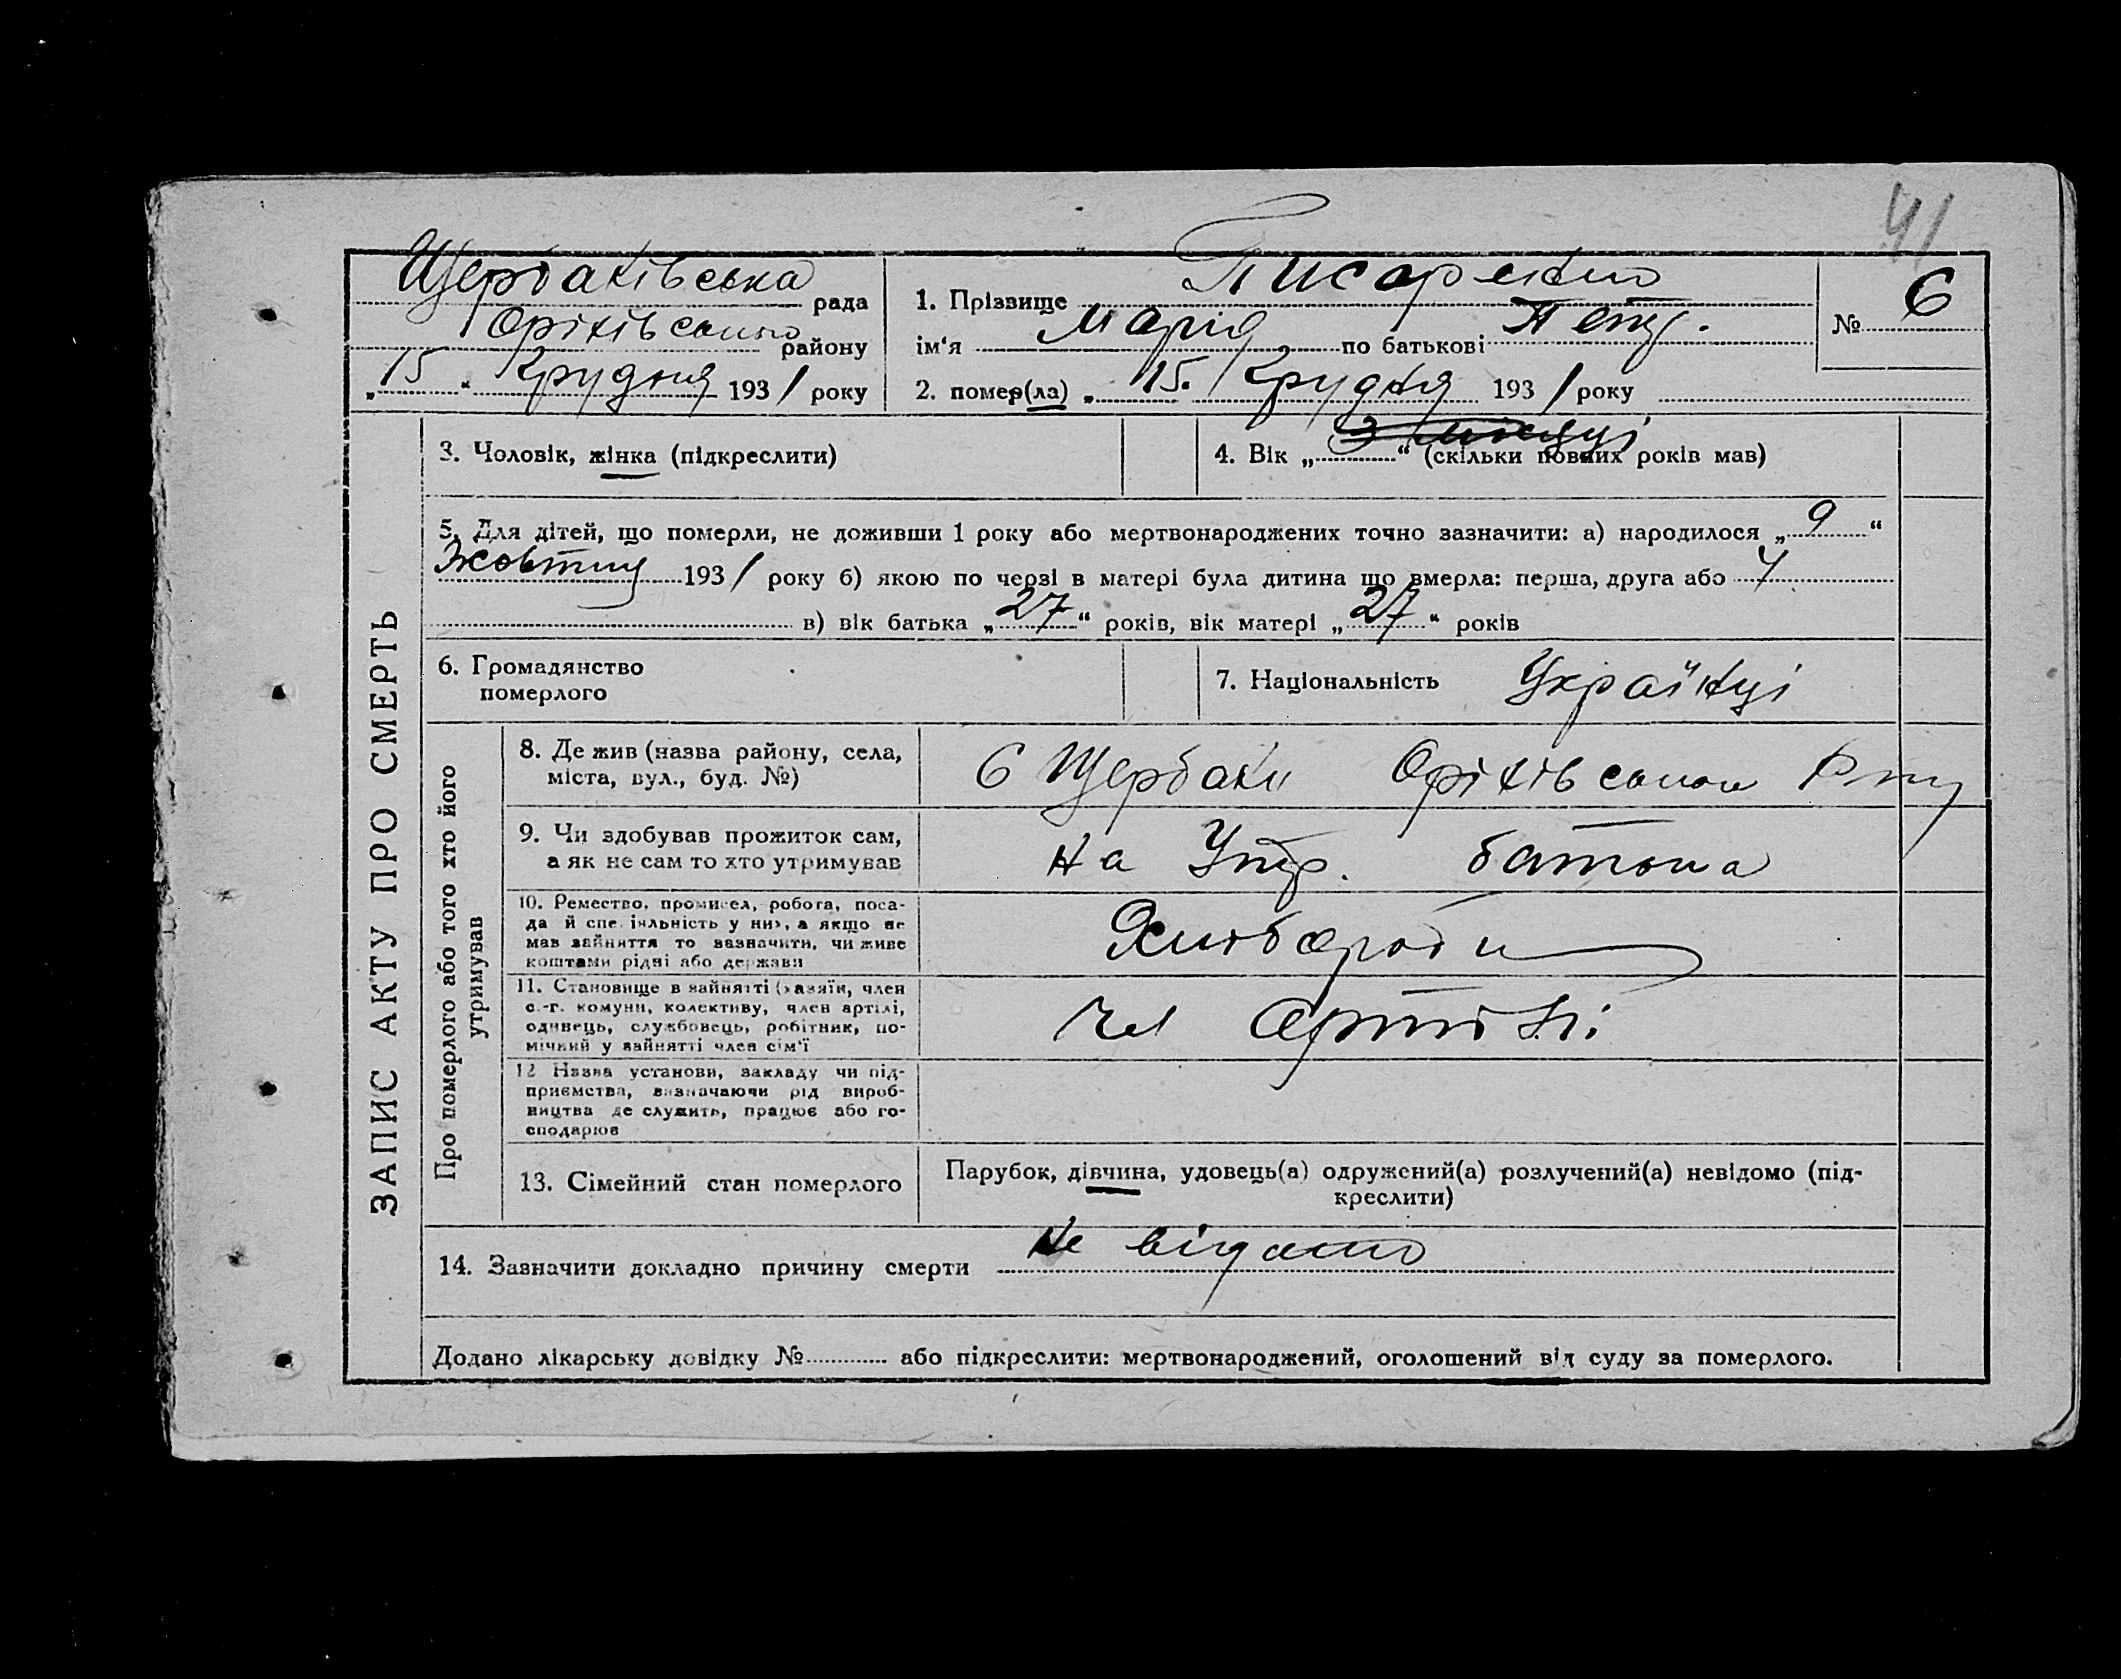 41
Щербаківська рада
Оріхівського району
„15“ Грудня 1931 року
1. Прізвище Писаренко
ім‘я Марія по батькові Петр.
2. помер(ла) „15. Грудня 1931 року
№ 6
ЗАПИС АКТУ ПРО СМЕРТЬ
3. Чоловік, жінка (підкреслити)
4. Вік „3 місяці“ (скільки повних років мав)
5. Для дітей, що померли, не доживши 1 року або мертвонароджених точно зазначити: а) народилося „9“
Жовтня 1931 року б) якою по черзі в матері була дитина що вмерла: перша, друга або 4
в) вік батька „27“ років, вік матері „27“ років
6. Громадянство
померлого
7. Національність Українці
Про померлого або того хто його
утримував
8. Де жив (назва району, села,
міста, вул., буд. №)
С Щербаки Оріхівського Р-ну
9. Чи здобував прожиток сам,
а як не сам то хто утримував
На Утр. батька
10. Ремество, промисел, робота, поса-
да й спеціяльність у них, а якщо не
мав зайняття то зазначити, чи живе
коштами рідні або держави
Хлібороби
11. Становище в зайнятті (хазяїн, член
с.-г. комуни, колективу, член артілі,
одинець, службовець, робітник, по-
мічний у зайнятті член сім‘ї
Чл Артілі
12 Назва установи, закладу чи під-
приємства, визначаючи рід вироб-
ництва де служить, працює або го-
сподарює
13. Сімейний стан померлого
Парубок, дівчина, удовець(а) одружений(а) розлучений(а) невідомо (під-
креслити)
14. Зазначити докладно причину смерти Не відомо
Додано лікарську довідку № або підкреслити: мертвонароджений, оголошений від суду за померлого.